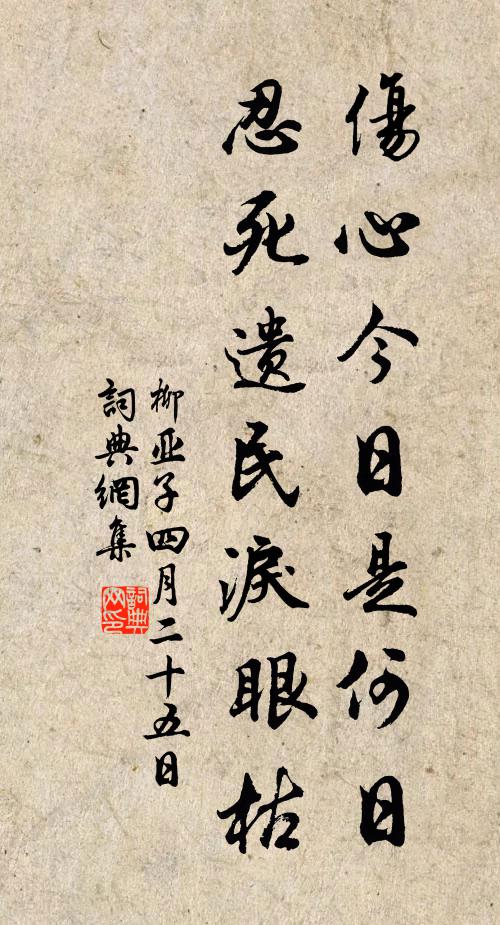 傷心今日是何日
忍死遺民淚眼枯
柳亚子四月二十五日
詞典網集
詞典网印